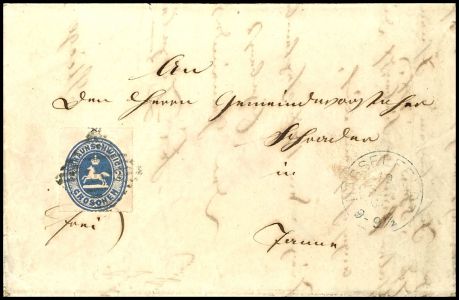 An
den Herrn Gemeindevorsteher
Schrader
in
Tanne
frei
BRAUNSCHWEIG
GROSCHEN
9-9½